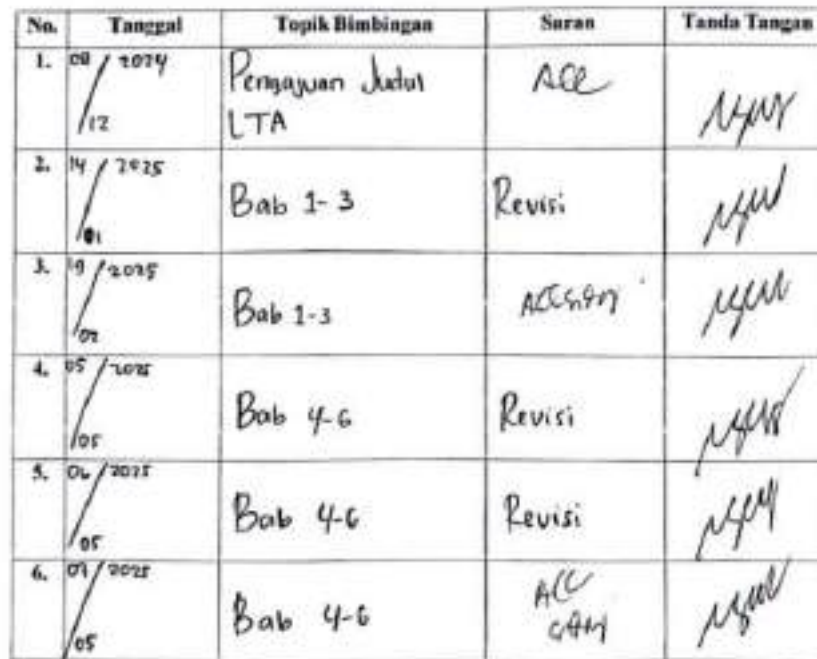 No. Tanggal Topik Bimbingan Saran Tanda Tangan
1. 2024 Pengajuan Judul ACC
12 LTA
2. 14 / 2025 Bab 1-3 Revisi
01
3. 19 / 2025 Bab 1-3 ACC
02
4. 05 / 2025 Bab 4-6 Revisi
05
5. 06 / 2025 Bab 4-6 Revisi
05
6. 2025 Bab 4-6 ACC
05